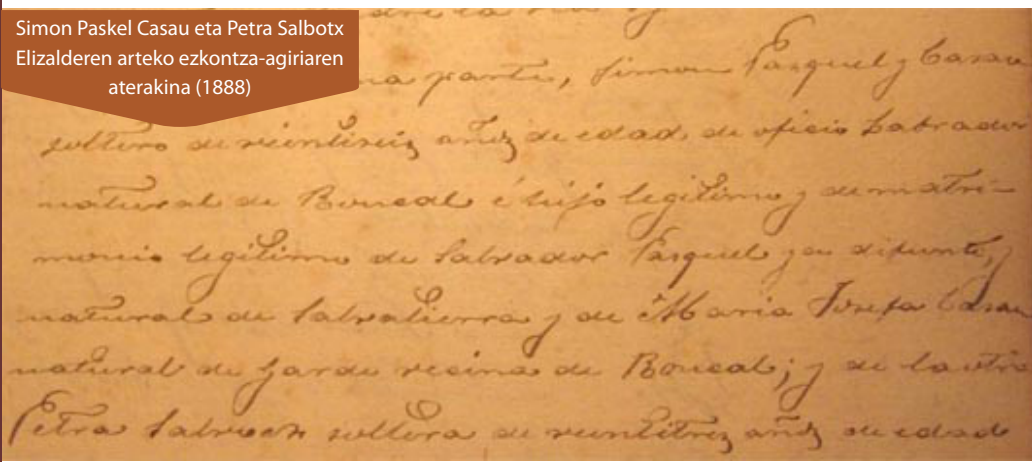 Simon Paskel Casau eta Petra Salbotx
Elizalderen arteko ezkontza-agiriaren
aterakina (1888)
na parte, Simon Pasquel y Casau
soltero de veintiseis años de edad, de oficio Labrador
natural de Roncal é hijo legitimo y de matri-
monio legitimo de Salvador Pasquel ya difunto, y
natural de Salvatierra y de Maria Josefa Casau
natural de Garde vecina de Roncal; y de la otra
Petra Salvoch soltera de veintitres años de edad